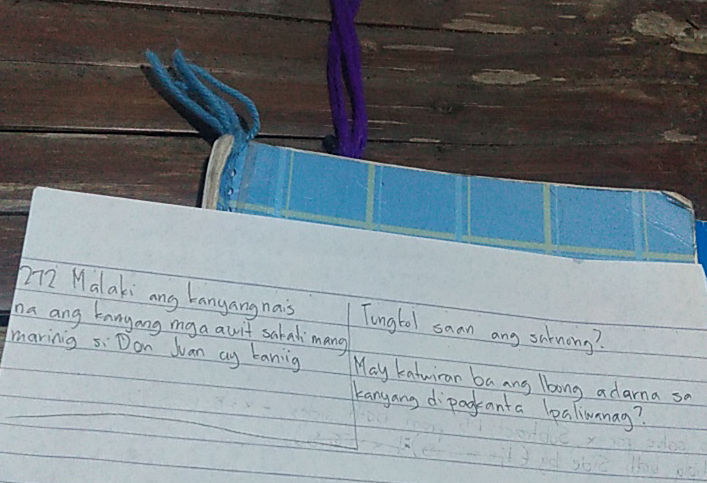 272 Malaki ang kanyang nais
na ang kanyang mga awit sakali mang
marinig si Don Juan ay kaniig
Tungkol saan ang saknong?
May katwiran ba ang Ibong adarna sa
kanyang di pagkanta Ipaliwanag?